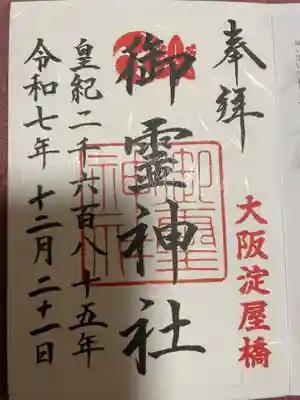 奉拝
大阪淀屋橋
御霊神社
皇紀二千六百八十五年
令和七年 十二月二十一日